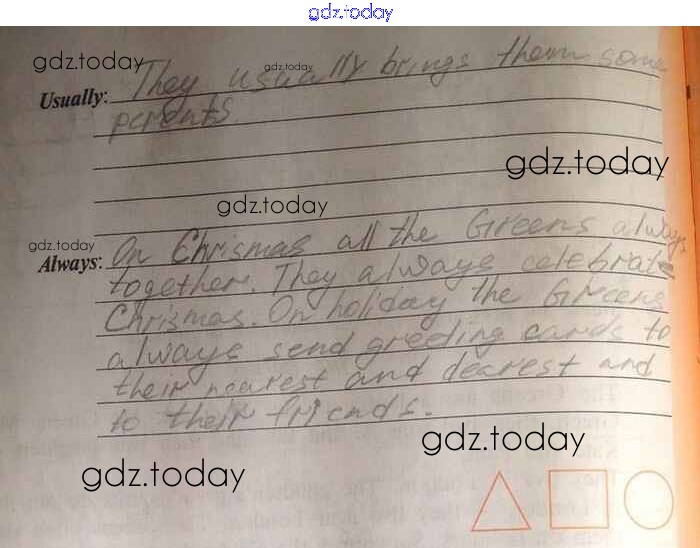 gdz.today
gdz.today
gdz.today
Usually: They usually brings them some
perents.
gdz.today
gdz.today
gdz.today
Always: On Chrismas all the Greens always
together. They always celebrate
Chrismas. On holiday the Greens
always send greeting cards to
their nearest and dearest and
to their friends.
gdz.today
gdz.today